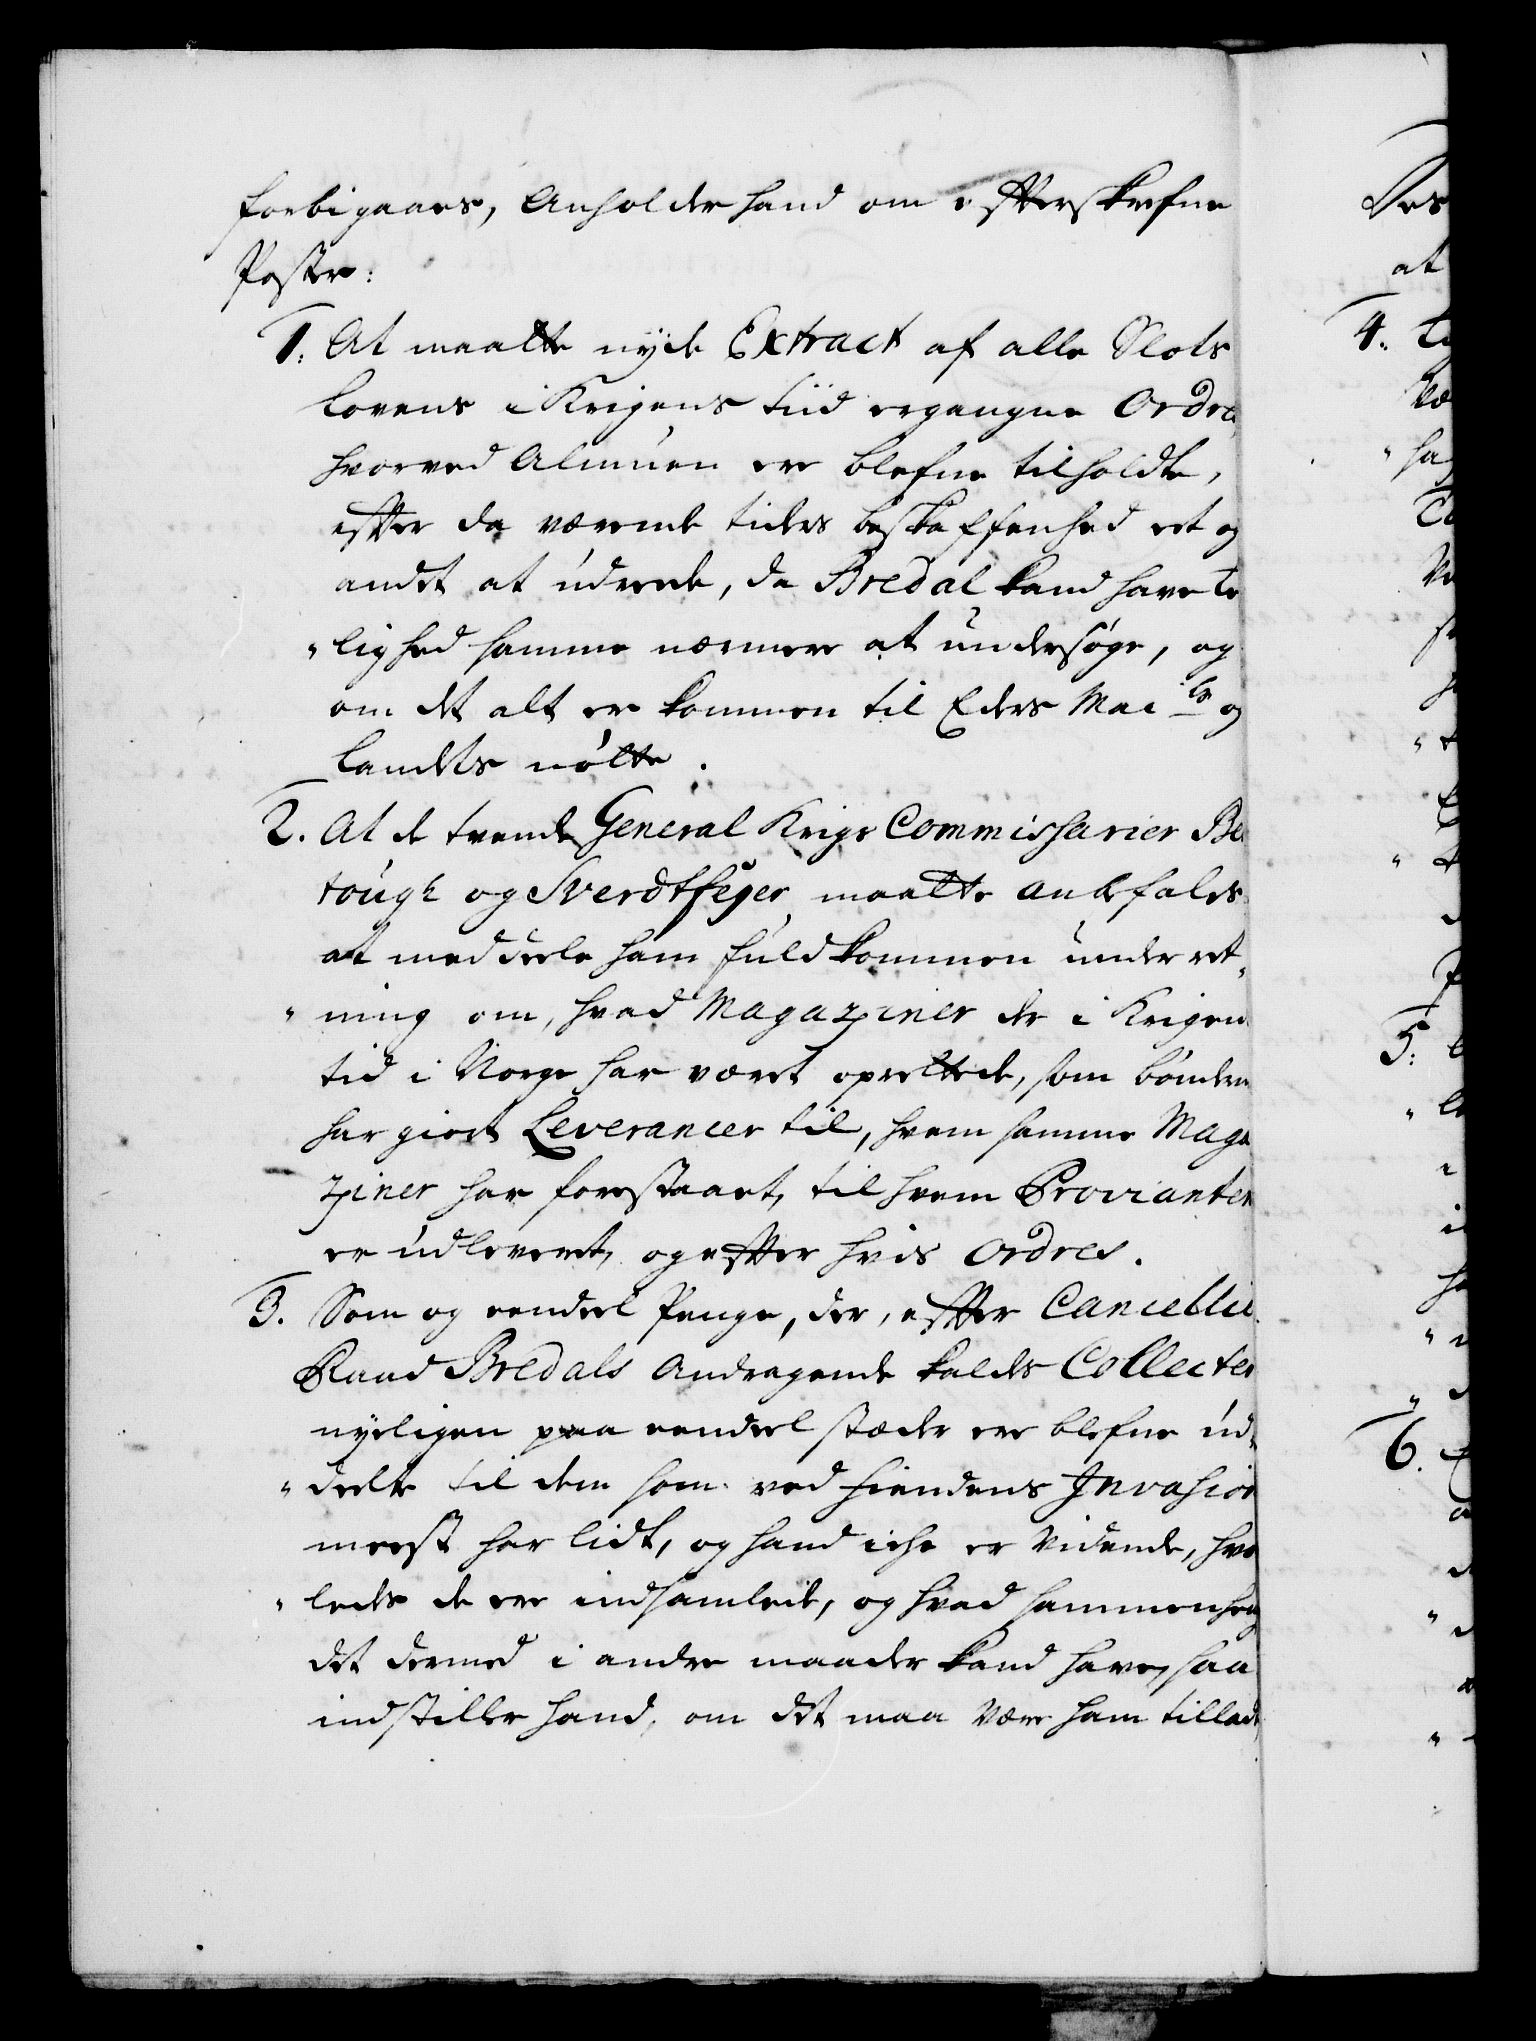 forbigaaes, Anholder hand om efterskrefne
Poster:
1. At maatte nyde Extract af alle Slots
Lovens i Krigens tiid ergangne Ordre,
hvorved Almuen ere blefne tilholdte,
effter da værende tiders beskaffenhed eet og
andet at udrede, da Bredal kand have Le
"lighed samme nærmere at undersøge, og
om det alt er kommen til Eders Mai ts og
Landets nøtte.
2. At de tvende General Krigs Commissarier Be
tough og Sverdtfeger maatte anbefales
at meddeele ham fuldkommen underret"
"ning om, hvad Magaziner der i Krigens
tid i Norge har været oprettede, som bønderne
har giort Leverancer til, hvem samme Maga
ziner har forestaaet, til hvem Provianten
er udleveret, og effter hvis Ordres.
3. Som og eendeel Penge, der, effter Cancellie
Raad Bredals Andragende kaldes Collecter
nyeligen paa eendeel stæder ere blefne ud"
"deelte til dem som ved Fiendens Invasion
meest har lidt, og hand iche er vidende, hvo
"ledes de ere indsamlede, og hvad sammenheng
det dermed i andre maader kand have, saa
indstiller hand, om det maa være ham tilladt,
Des
at
4.
5:
6.